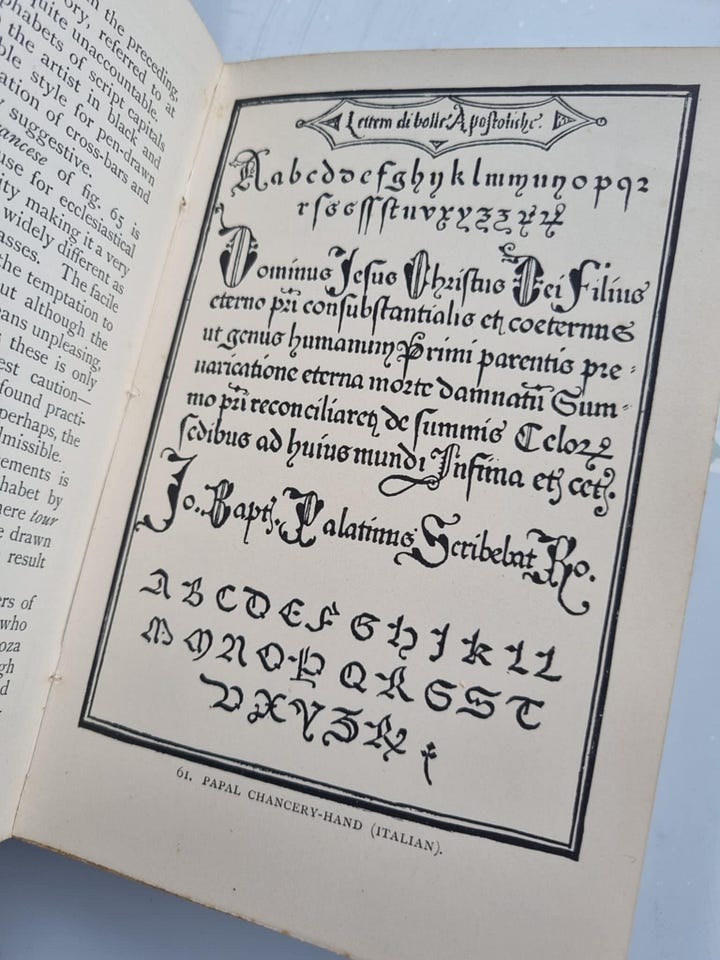 n the preceding,
ory, referred to at
quite unaccountable.
phabets of script capitals
the artist in black and
ble style for pen-drawn
ation of cross-bars and
y suggestive.
ancese of fig. 65 is
use for ecclesiastical
ity making it a very
widely different as
asses. The facile
the temptation to
ut although the
eans unpleasing,
these is only
est caution—
found practi-
perhaps, the
lmissible.
ements is
habet by
here tour
e drawn
result
ers of
who
oza
gh
d
Lettera di bolle Apostoliche.
A a b c d d e f g h y k l m m y u n y o p q 2
r s s s ſſ ſt t u v x y z
Dominus Jesus Christus Dei Filius
eterno pri consubstantialis et coeternus
ut genus humanum Primi parentis pre-
uaricatione eterna morte damnatu Sum-
mo pri reconciliaret de summis Celoꝝ
sedibus ad huius mundi Infima et cet.
Jo. Bapt. Palatinus Scribebat Ro.
A B C D E F G H J K L L
M M N O P Q R S S T
V X Y Z R
61. PAPAL CHANCERY-HAND (ITALIAN).